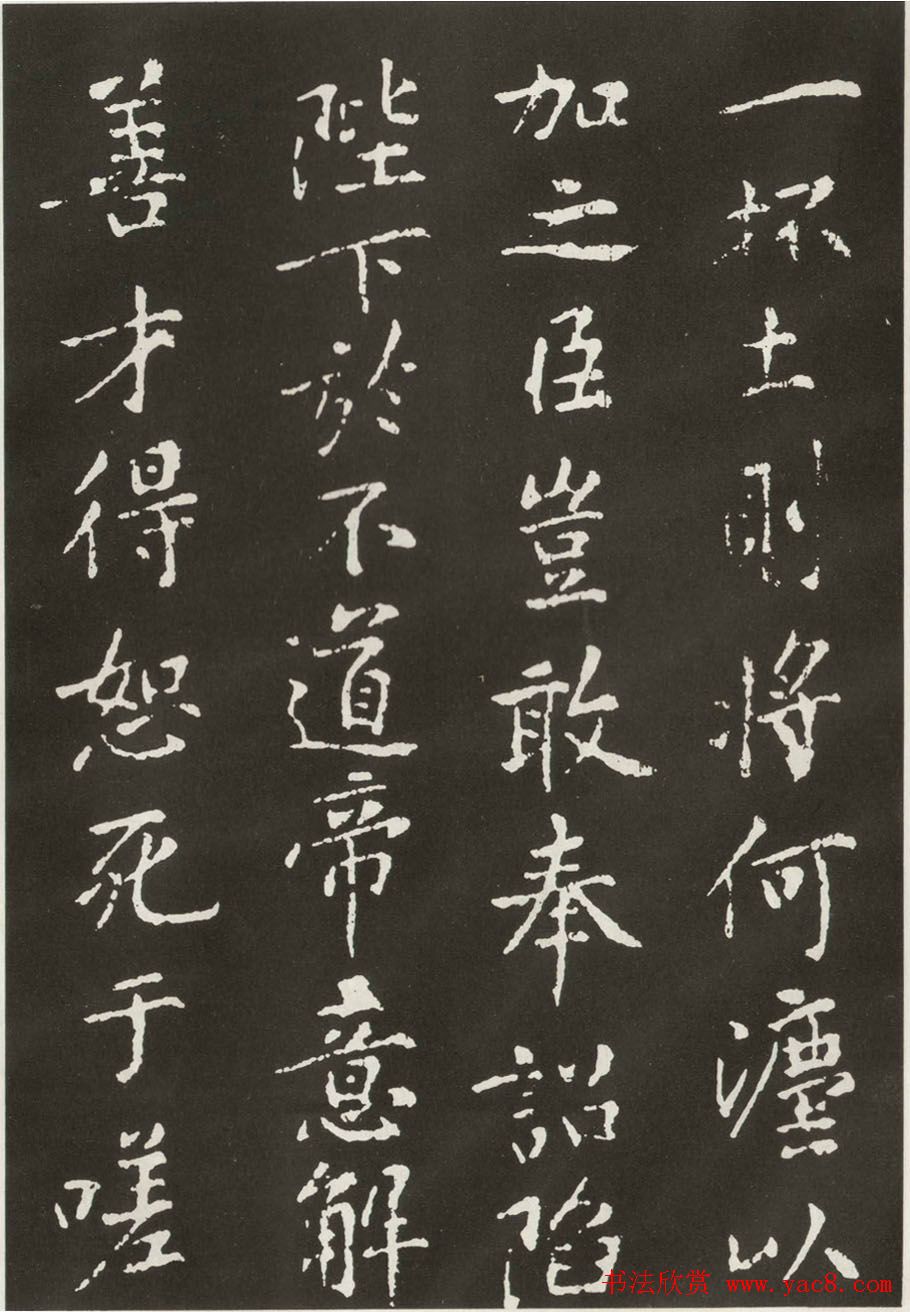 一抔土則將何灋以
加之臣豈敢奉詔陷
陛下於不道帝意解
善才得恕死于嗟
书法欣赏 www.yac8.com